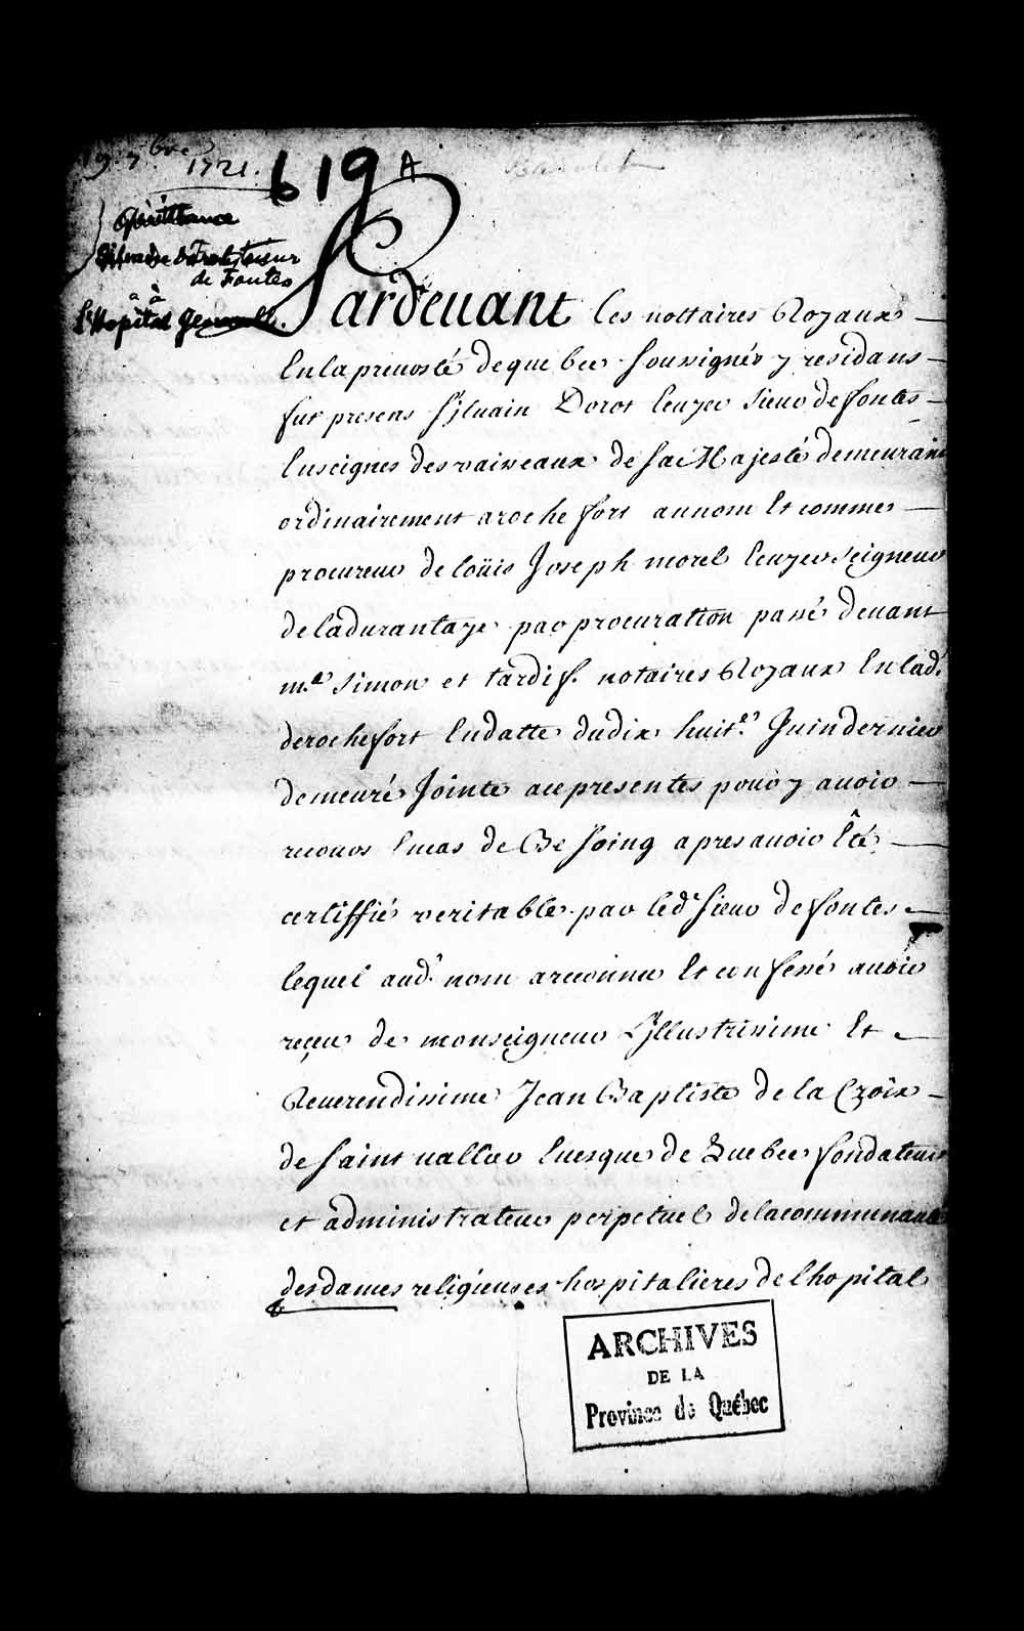 19. 7bre
1721.
619 A
Barolet
Quittance
de Fontes
a à
l'Hopital General.
Pardeuant les nottaires Royaux
En la preuosté de quebec soussignés y residans
fut presens Syluain Dorot Ecuyer sieur de fontes
Enseignes des vaisseaux de sa Majesté demeurant
ordinairement a roche fort au nom Et comme
procureur de loüis Joseph morel Ecuyer Seigneur
de la durantaye par procuration passé deuant
m.e Simon et tardif. notaires Royaux En lad.
de rochefort En datte du dix huit.e Juin dernier
demeuré Jointe a ces presentes pour y auoir
recours En cas de Besoing apres auoir Eté
certiffié veritable par led. sieur de fontes
lequel aud. nom a reconnu Et confessé auoir
reçeu de monseigneur Illustrissime Et
Reuerendissime Jean Baptiste de la Croix
de Saint uallier Euesque de Quebec fondateur
et administrateur perpetuel de la communauté
des dames religieuses hospitalieres de l'hopital
ARCHIVES
DE LA
Province de Québec